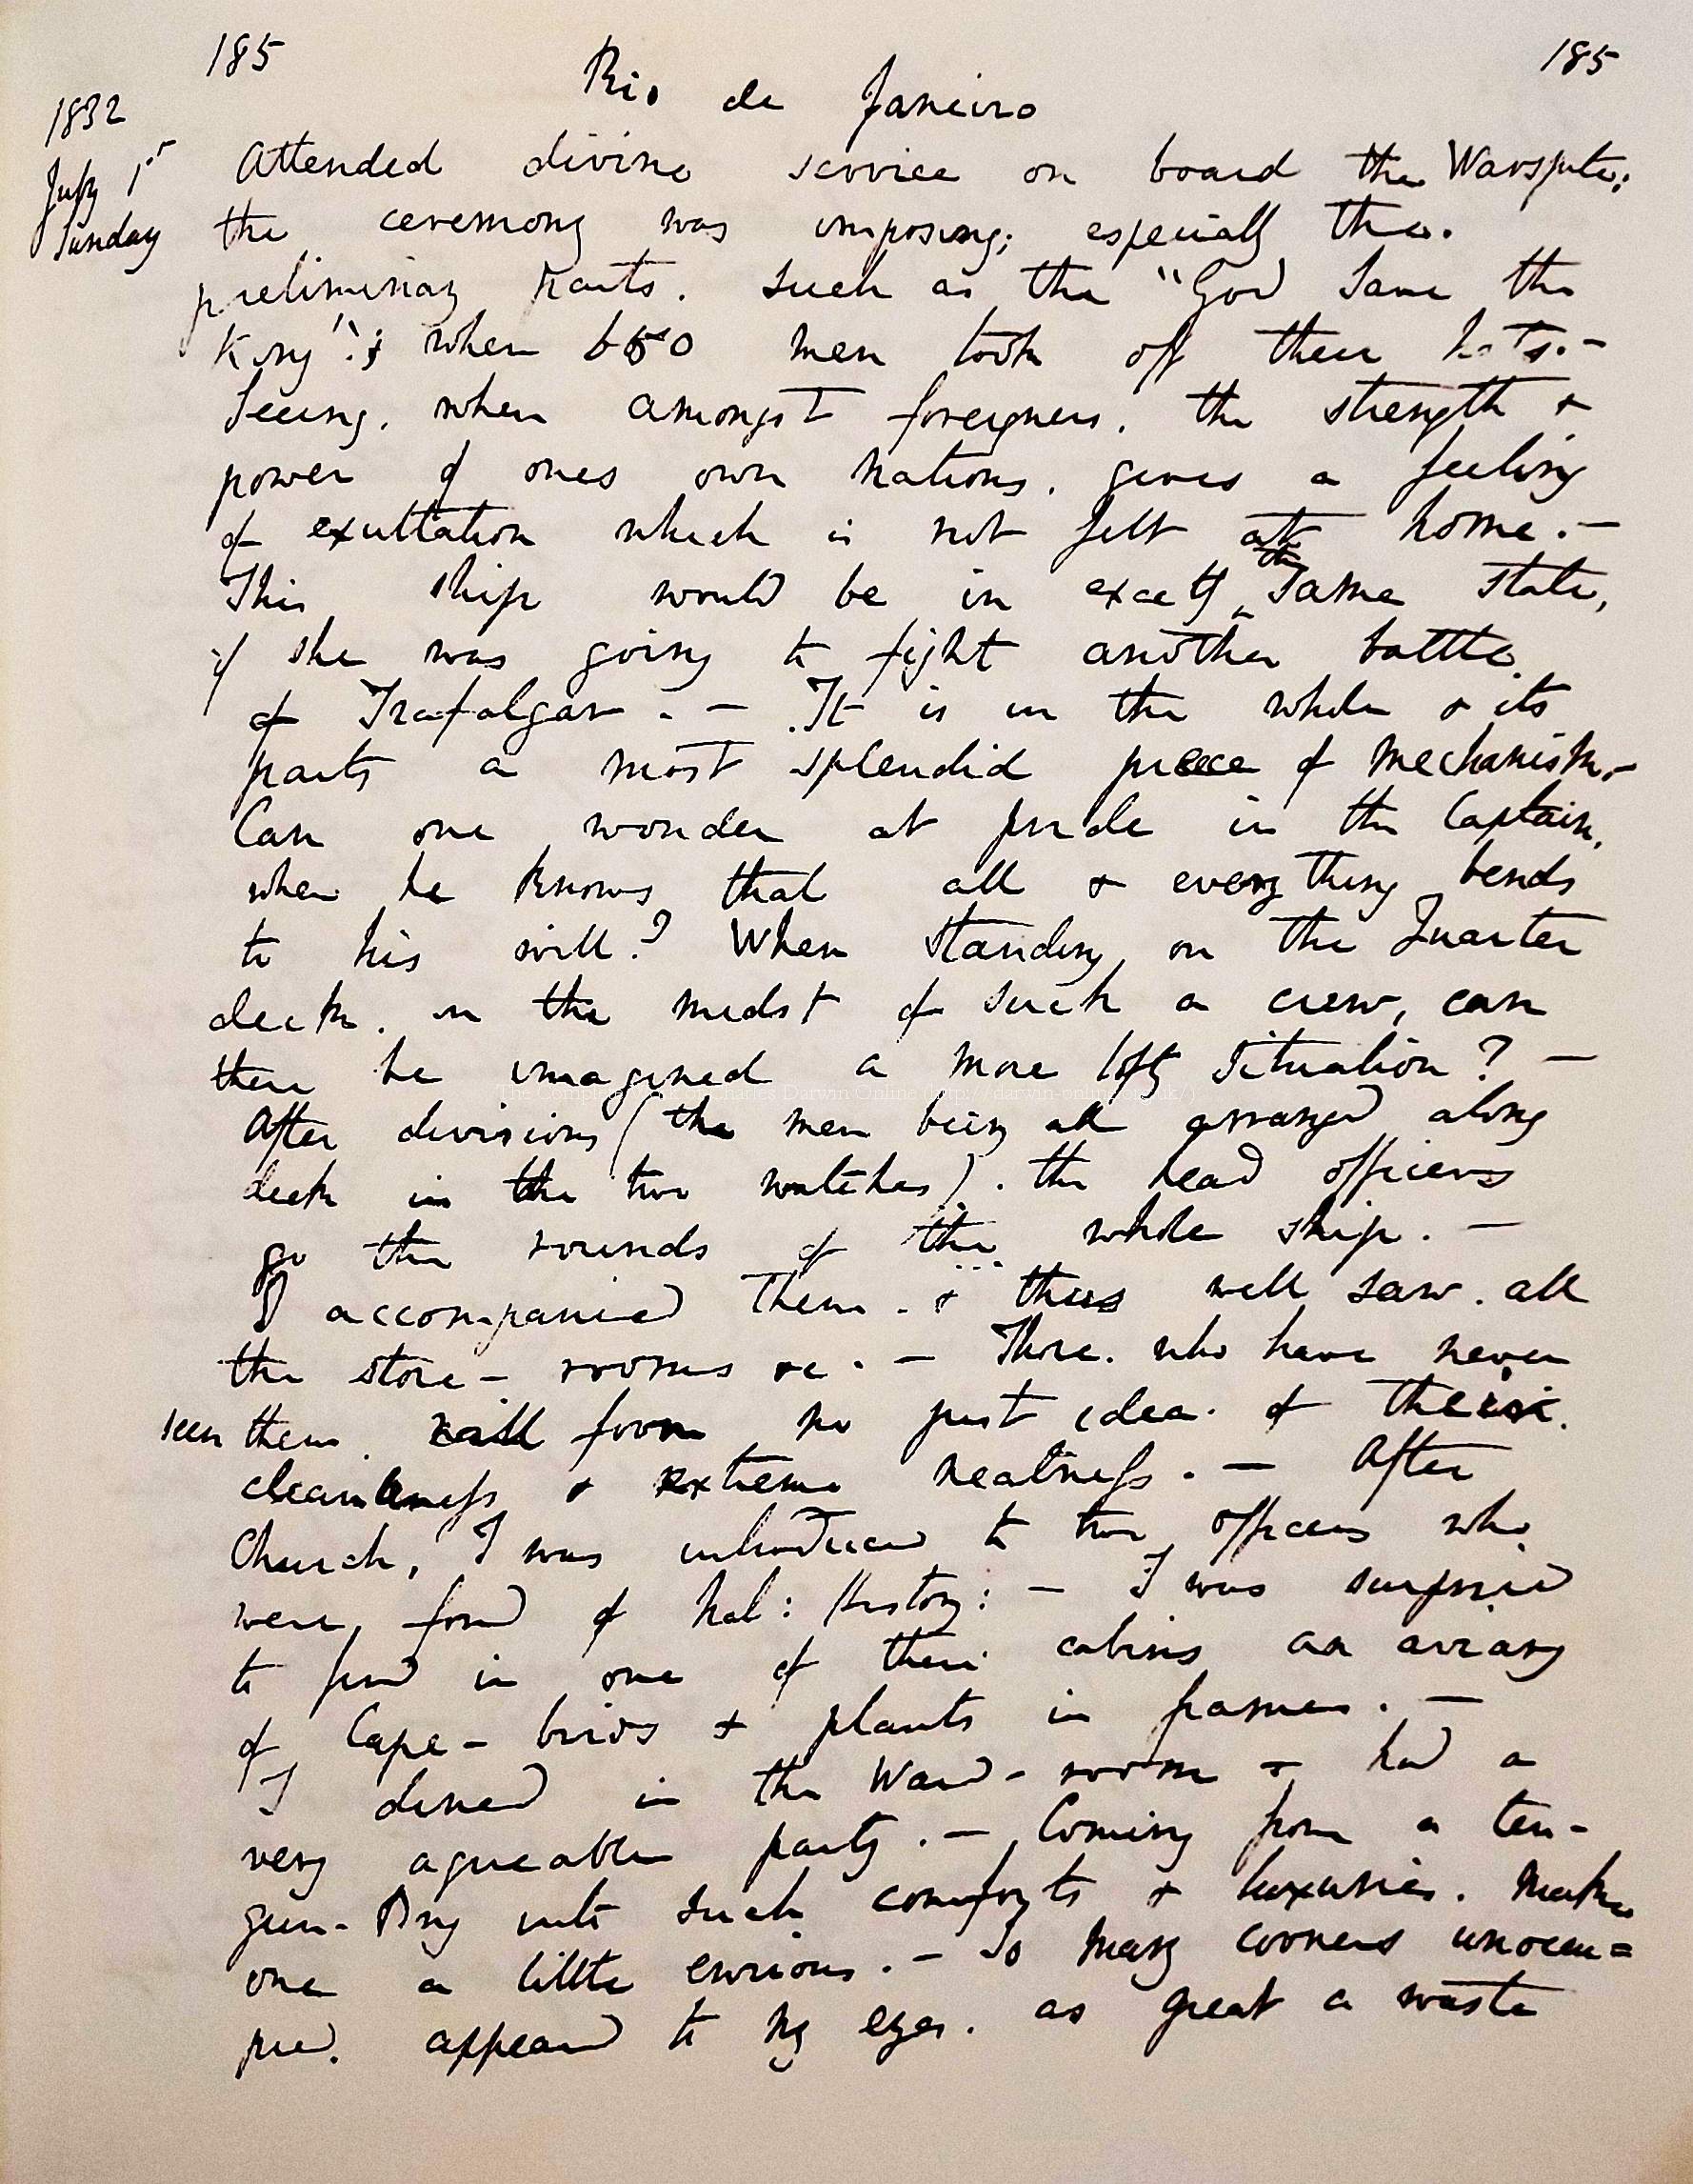 185 Rio de Janeiro 185
1832
July 1st Attended divine service on board the Warspite;
Sunday the ceremony was imposing; especially the
preliminary parts. such as the "God save the
King"; when 650 men took off their hats.—
Seeing, when amongst foreigners, the strength &
power of ones own nations, gives a feeling
of exultation which is not felt at home.—
This ship would be in exactly the same state,
if she was going to fight another battle
of Trafalgar.— It is in the whole & its
parts a most splendid piece of mechanism.—
Can one wonder at pride in the Captain,
when he knows that all & everything bends
to his will? When standing on the Quarter
deck, in the midst of such a crew, can
there be imagined a more lofty situation? —
After divisions (the men being all arranged along
deck in the two watches). the head officers
go the rounds of the whole ship. —
I accompanied them. & thus well saw. all
the store-rooms &c.— Those. who have never
seen them. will form no just idea. of their
cleanliness & extreme neatness.— After
Church, I was introduced to two officers who
were, fond of Nat: History:— I was surprised
to find in one of their cabins an aviary
of Cape-birds & plants in frames.—
I dined in the Ward-room & had a
very agreeable party.— Coming from a ten-
gun-Brig into such comforts & luxuries. makes
one a little envious.— So many corners unoccu=
pied. appeared to my eyes. as great a waste